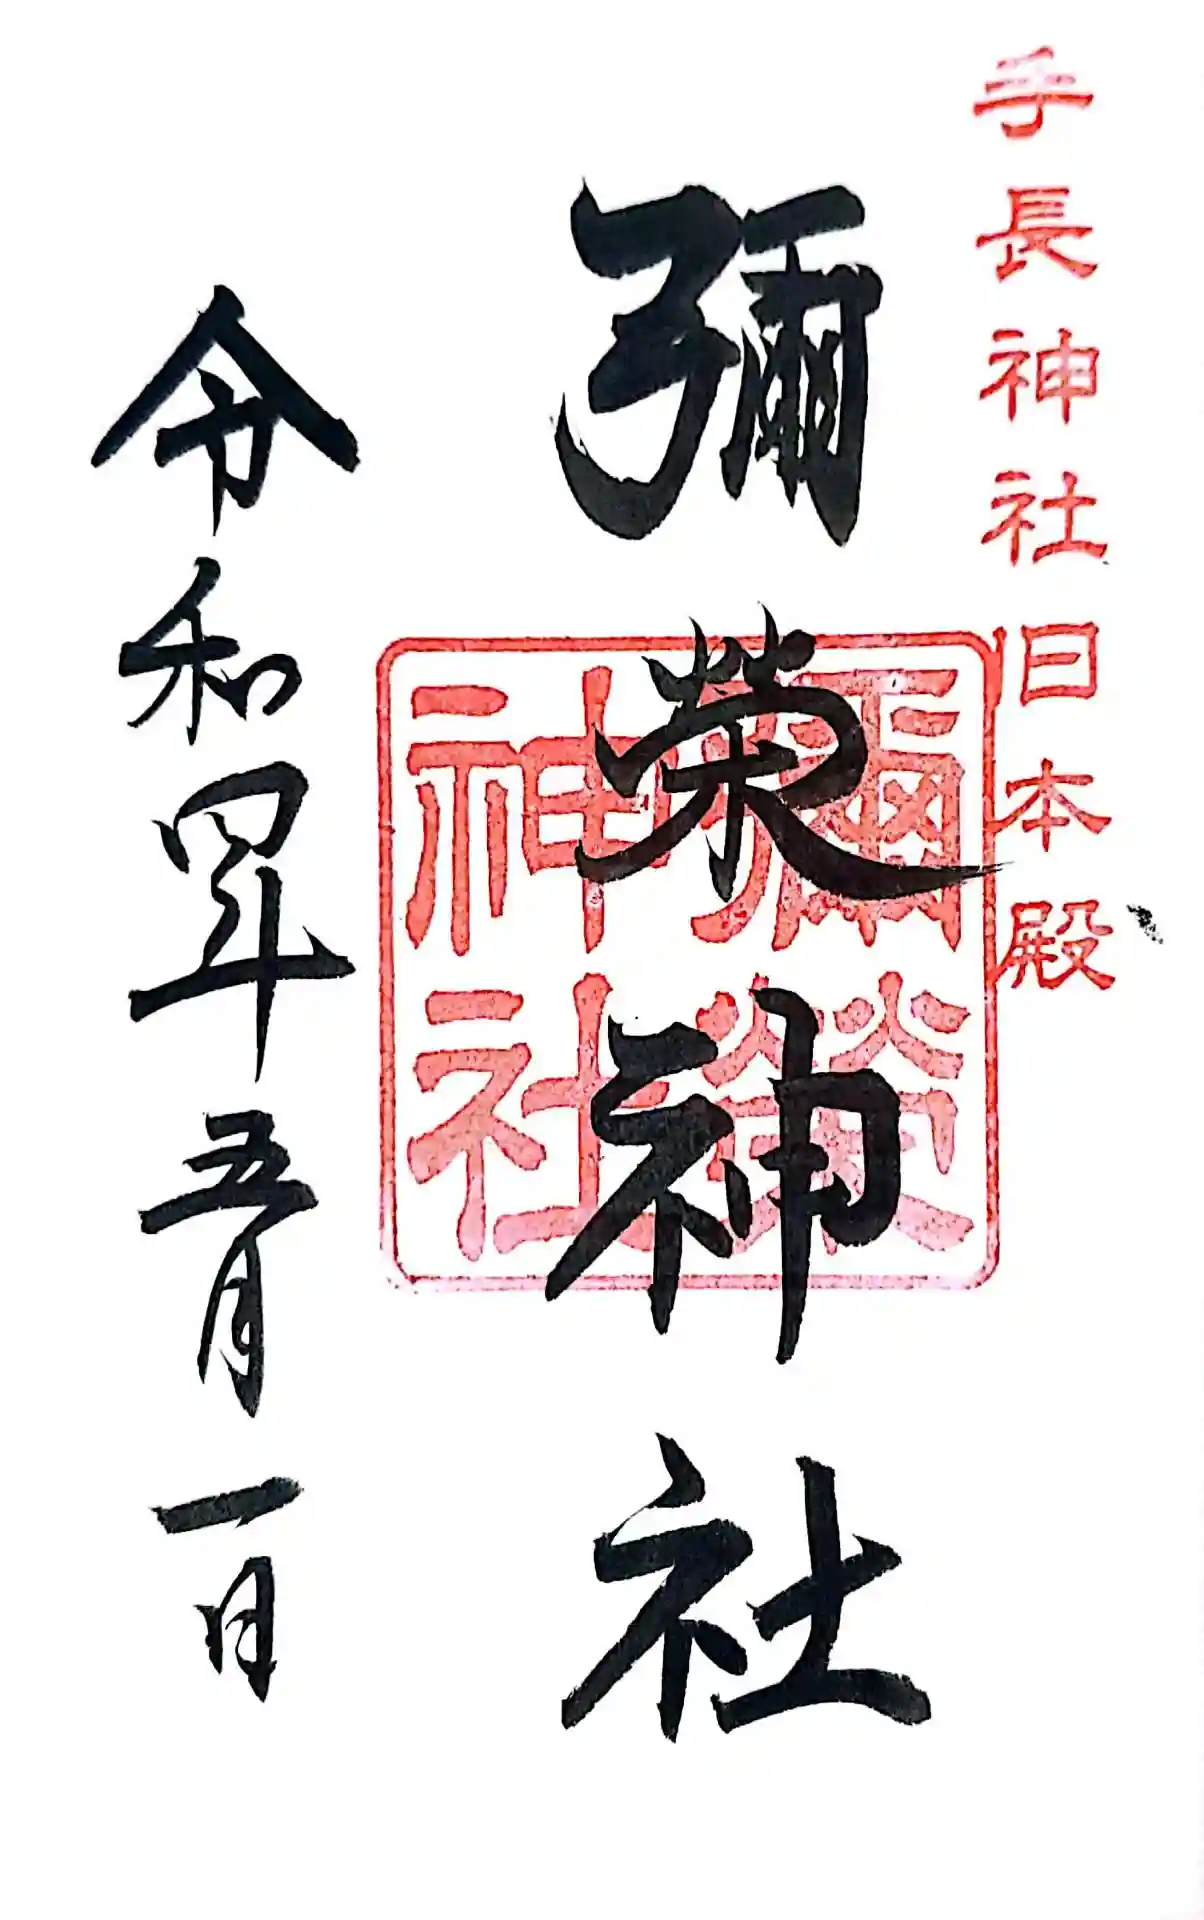 手長神社旧本殿
彌榮神社
彌榮
神社
令和四年五月一日